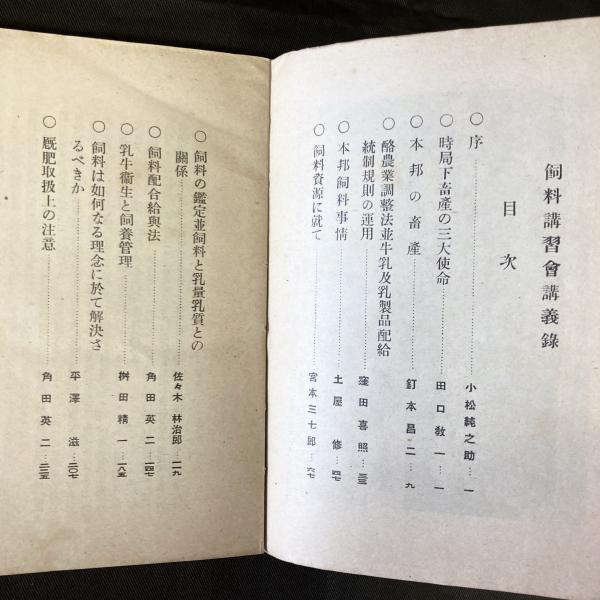 飼料講習會講義錄
目次
○序……小松純之助…一
○時局下畜産の三大使命……田口敎一…一
○本邦の畜産……釘本昌二…九
酪農業調整法並牛乳及乳製品配給
統制規則の運用……窪田喜照…三三
○本邦飼料事情……土屋修…四七
○飼料資源に就て……宮本三七郎…六七
○飼料の鑑定並飼料と乳量乳質との
關係……佐々木林治郎…一一九
○飼料配合給與法……角田英二…一四七
○乳牛衞生と飼養管理……桝田精一…一八五
○飼料は如何なる理念に於て解決さ
るべきか……平澤滋…二〇七
○厩肥取扱上の注意……角田英二…二三五